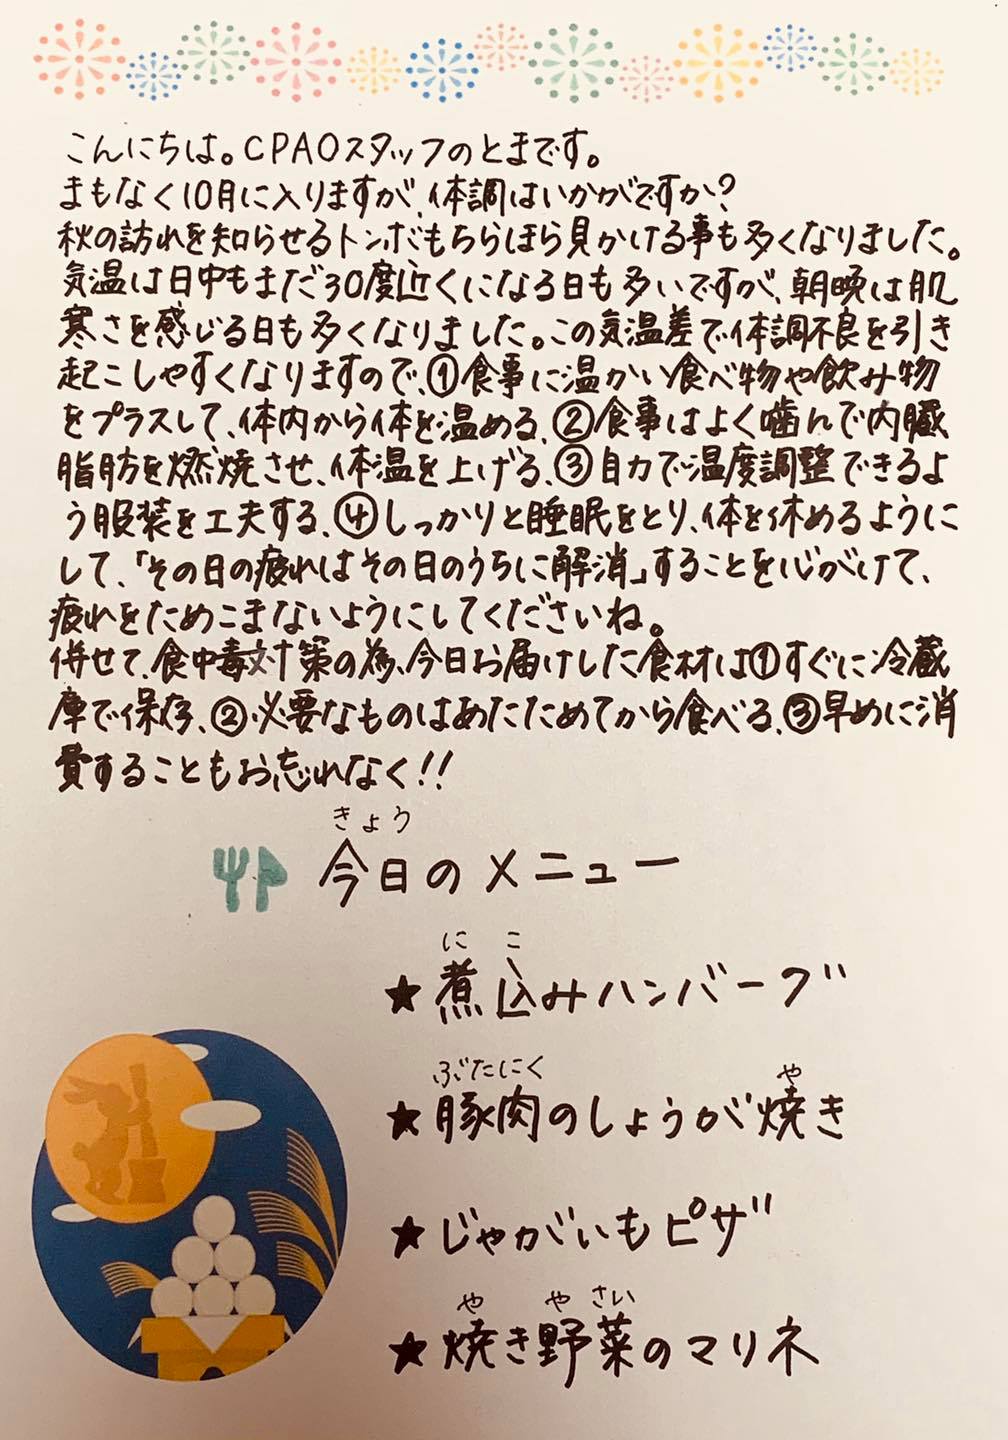 こんにちは。CPAOスタッフのとまです。
まもなく10月に入りますが、体調はいかがですか?
秋の訪れを知らせるトンボもちらほら見かける事も多くなりました。
気温は日中もまだ30度近くになる日も多いですが、朝晩は肌
寒さを感じる日も多くなりました。この気温差で体調不良を引き
起こしやすくなりますので、①食事に温かい食べ物や飲み物
をプラスして、体内から体を温める、②食事はよく噛んで内臓
脂肪を燃焼させ、体温を上げる、③自力で温度調整できるよ
う服装を工夫する、④しっかりと睡眠をとり、体を休めるように
して、「その日の疲れはその日のうちに解消」することを心がけて、
疲れをためこまないようにしてくださいね。
併せて、食中毒対策の為、今日お届けした食材は①すぐに冷蔵
庫で保存、②必要なものはあたためてから食べる、③早めに消
費することもお忘れなく!!
きょう
今日のメニュー
に こ
★煮込みハンバーグ
ぶたにく や
★豚肉のしょうが焼き
★じゃがいもピザ
や や さい
★焼き野菜のマリネ